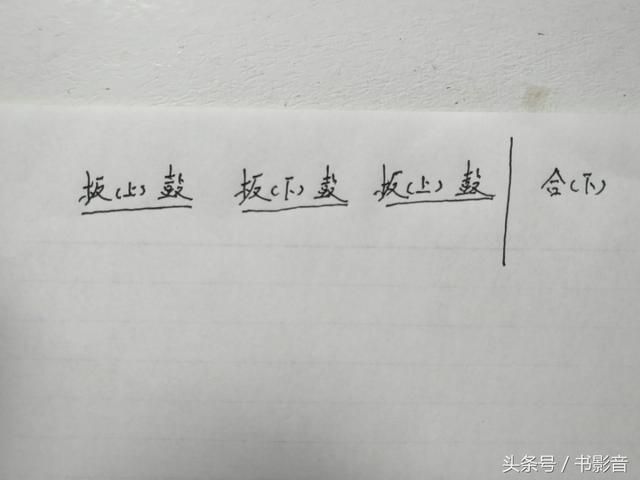 板(上)鼓 板(下)鼓 板(上)鼓 | 合(下)
头条号 / 书影音